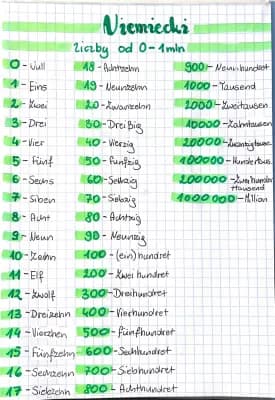 Niemiecki
liczby od 0-1mln
0 - Null
1 - Eins
2 - Zwei
3 - Drei
4 - Vier
5 - Fünf
6 - Sechs
7 - Siben
8 - Acht
9 - Neun
10 - Zehn
11 - Elf
12 - Zwolf
13 - Dreizehn
14 - Vierzhen
15 - Fünfzehn
16 - Sechzehn
17 - Siebzehn
18 - Achtzehn
19 - Neunzehn
20 - Zwanzehn
30 - Dreißig
40 - Vierzig
50 - Funfzig
60 - Sehzig
70 - Sebzig
80 - Achtzig
90 - Neunzig
100 - (ein)hundret
200 - Zweihundret
300 - Dreihundret
400 - Vierhundret
500 - Fünfhundret
600 - Sechhundret
700 - Siebhundret
800 - Achthundret
900 - Neunhundret
1000 - Tausend
2000 - Zweitausend
10000 - Zehntausen
20000 - Zwanzigtausend
100000 -
200000 - Zweihunder
ttausend
1000000 - Milion